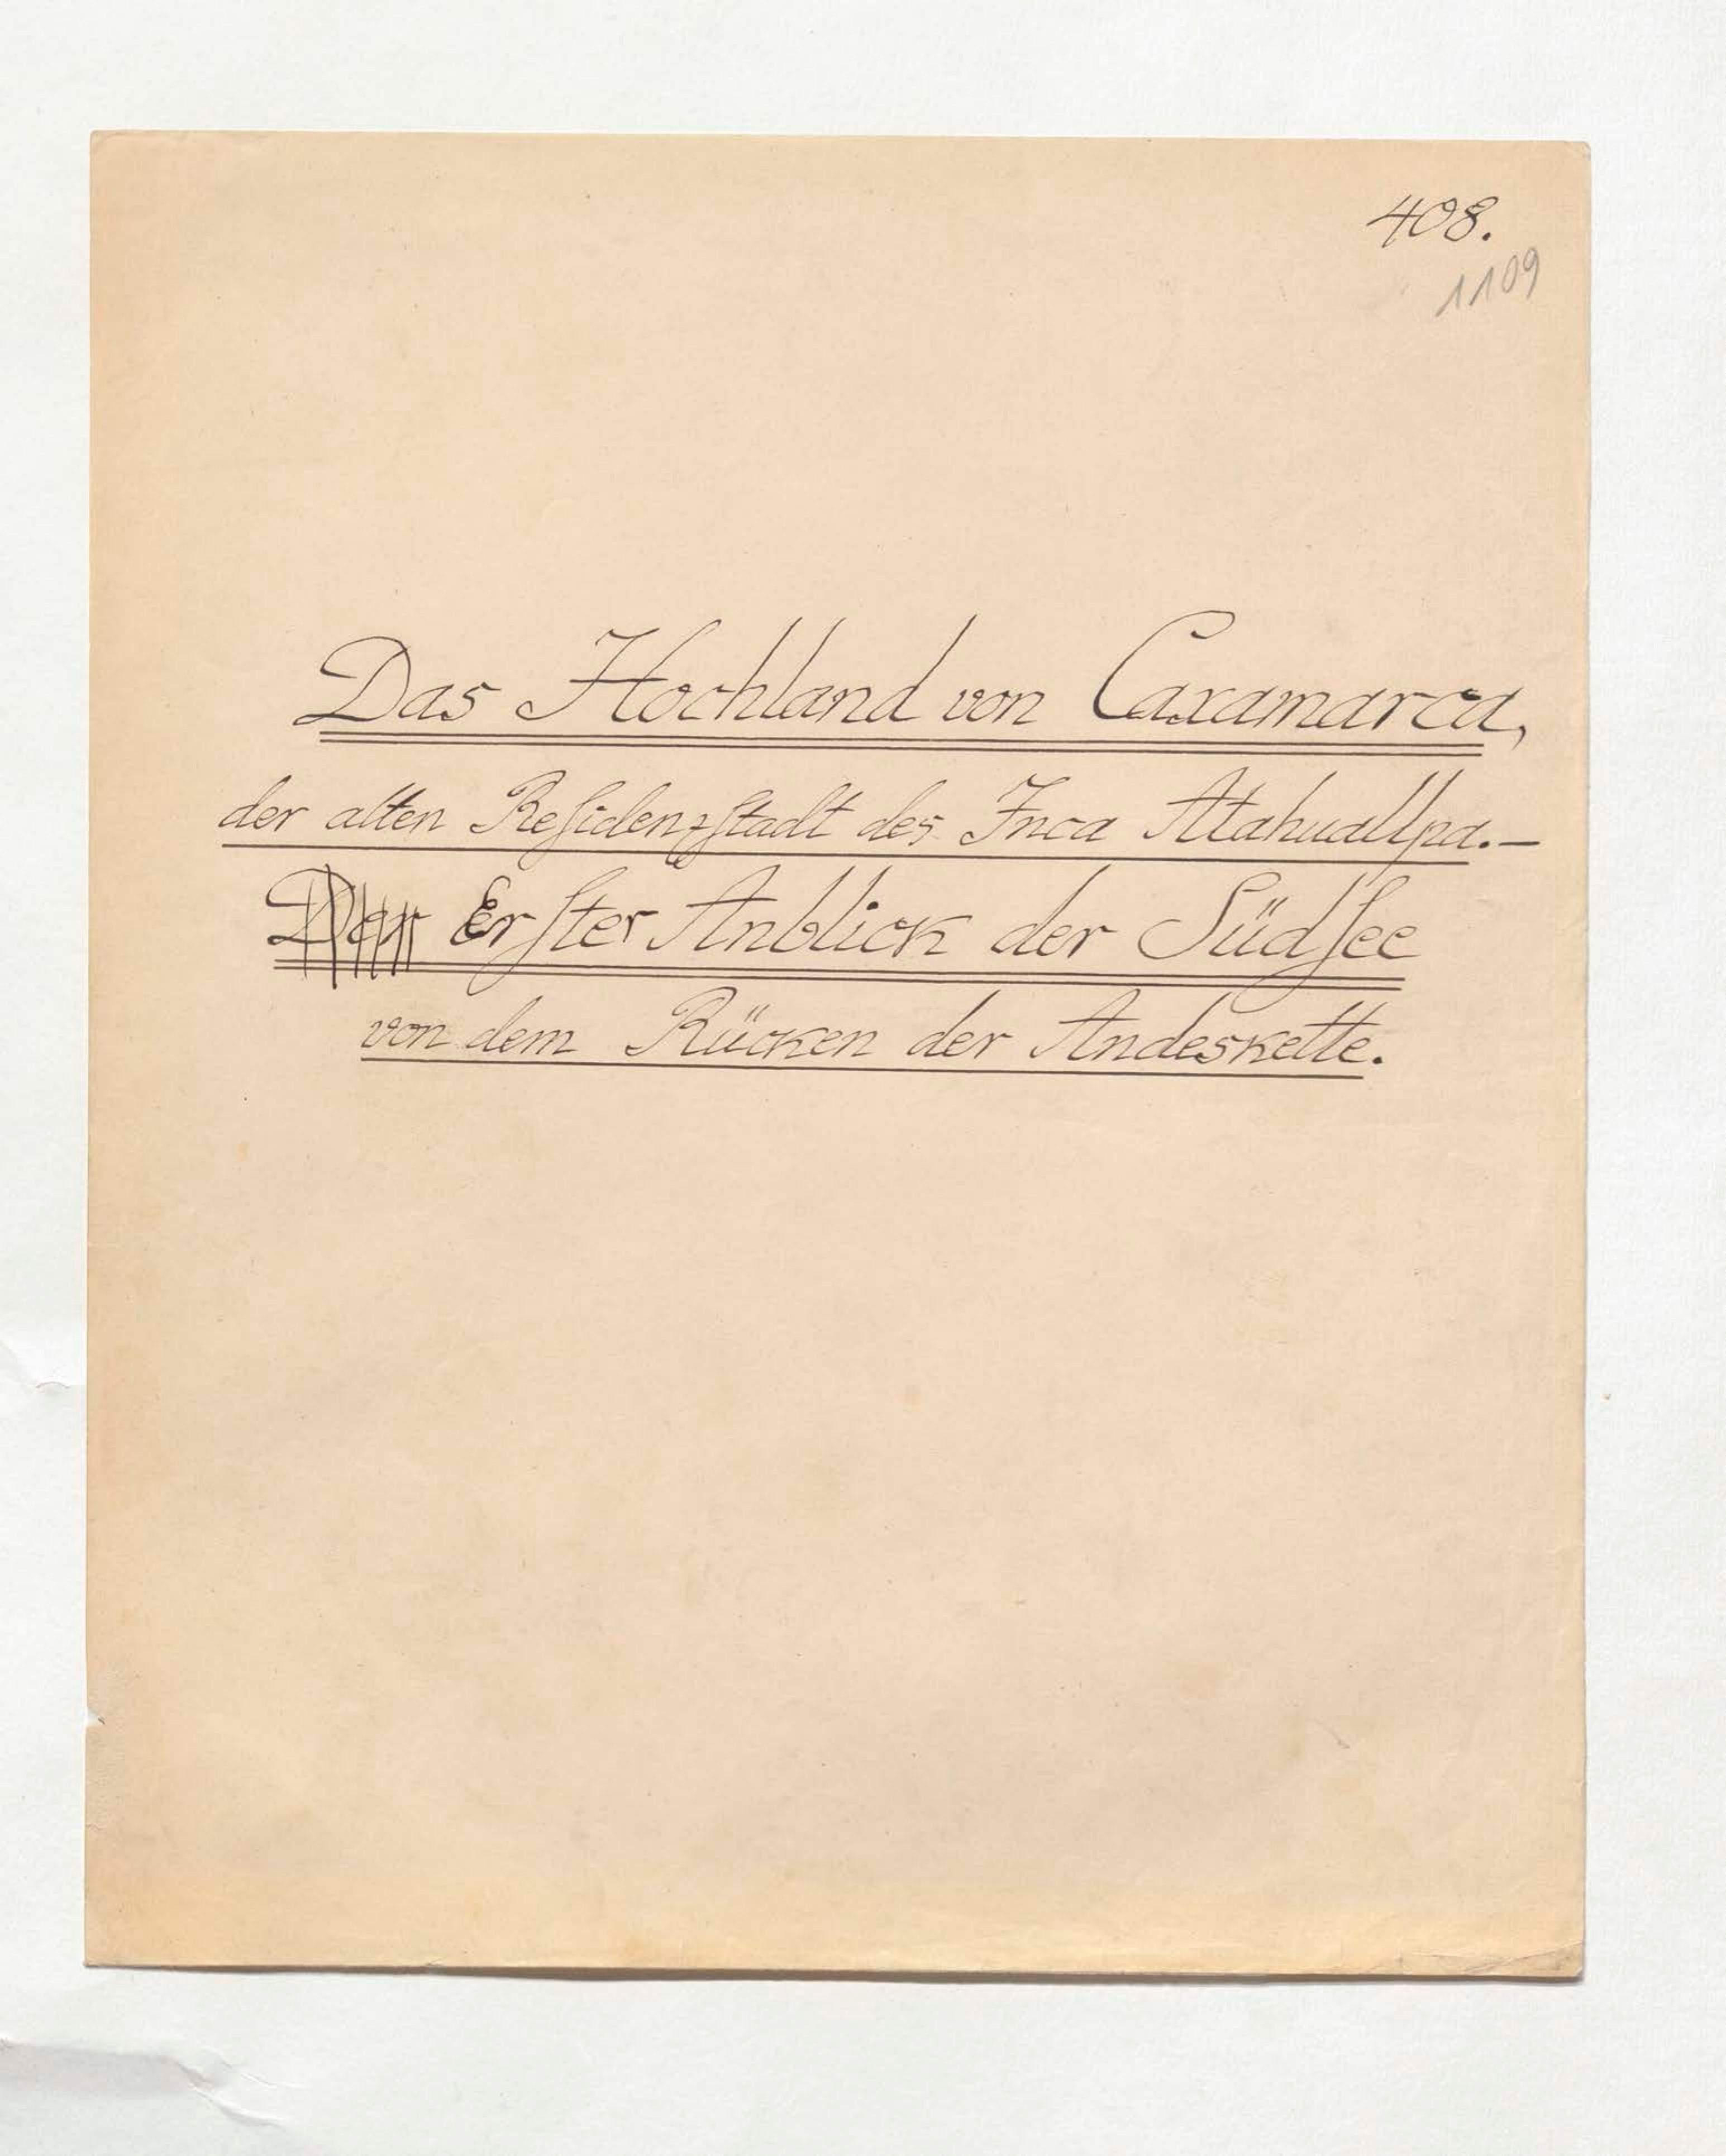 408.
1109
Das Hochland von Caxamarca,
der alten Reſidenzſtadt des Inca Atahuallpa.—
Der Erſter Anblick der Südſee
von dem Rücken der Andeskette.